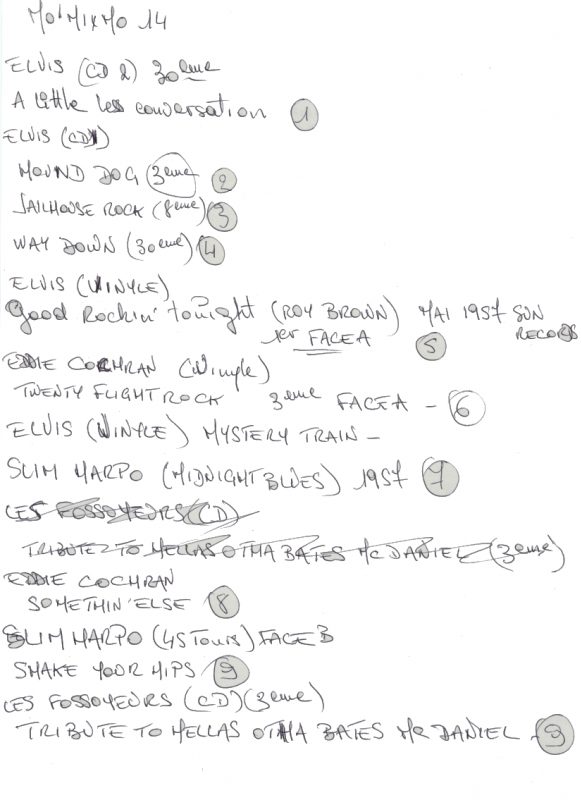 MO'MIXMO 14
ELVIS (CD 2) 30eme
A little less conversation 1
ELVIS (CD1)
HOUND DOG (3eme) 2
JAILHOUSE ROCK (8eme) 3
WAY DOWN (30eme) 4
ELVIS (VINYLE)
Good Rockin' tonight (ROY BROWN) MAI 1957 SUN RECORDS
1er FACE A 5
EDDIE COCHRAN (Vinyle)
TWENTY FLIGHT ROCK 3eme FACE A - 6
ELVIS (VINYLE) MYSTERY TRAIN -
SLIM HARPO (MIDNIGHT BLUES) 1957 7
LES FOSSOYEURS (CD)
TRIBUTE TO HELLAS OTHA BATES Mc DANIEL (3eme)
EDDIE COCHRAN
SOMETHIN' ELSE 8
SLIM HARPO (45 Tours) FACE B
SHAKE YOUR HIPS 9
LES FOSSOYEURS (CD) (3eme)
TRIBUTE TO HELLAS OTHA BATES Mc DANIEL - 9